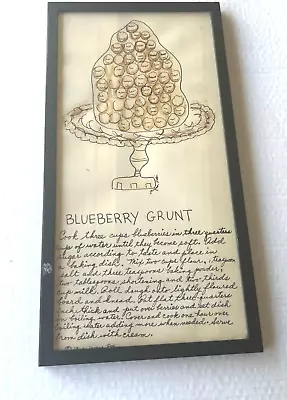 BLUEBERRY GRUNT
Cook three cups blueberries in three quarters
cups of water until they become soft. Add
sugar according to taste and place in
a baking dish. Mix two cups flour, teaspoon
salt and three teaspoons baking powder,
two tablespoons shortening and two thirds
cup milk. Roll dough onto lightly floured
board and knead. Pat flat three quarters
inch thick and put over berries and set dish
in boiling water. Cover and cook one hour over
boiling water adding more when needed. Serve
from dish with cream.